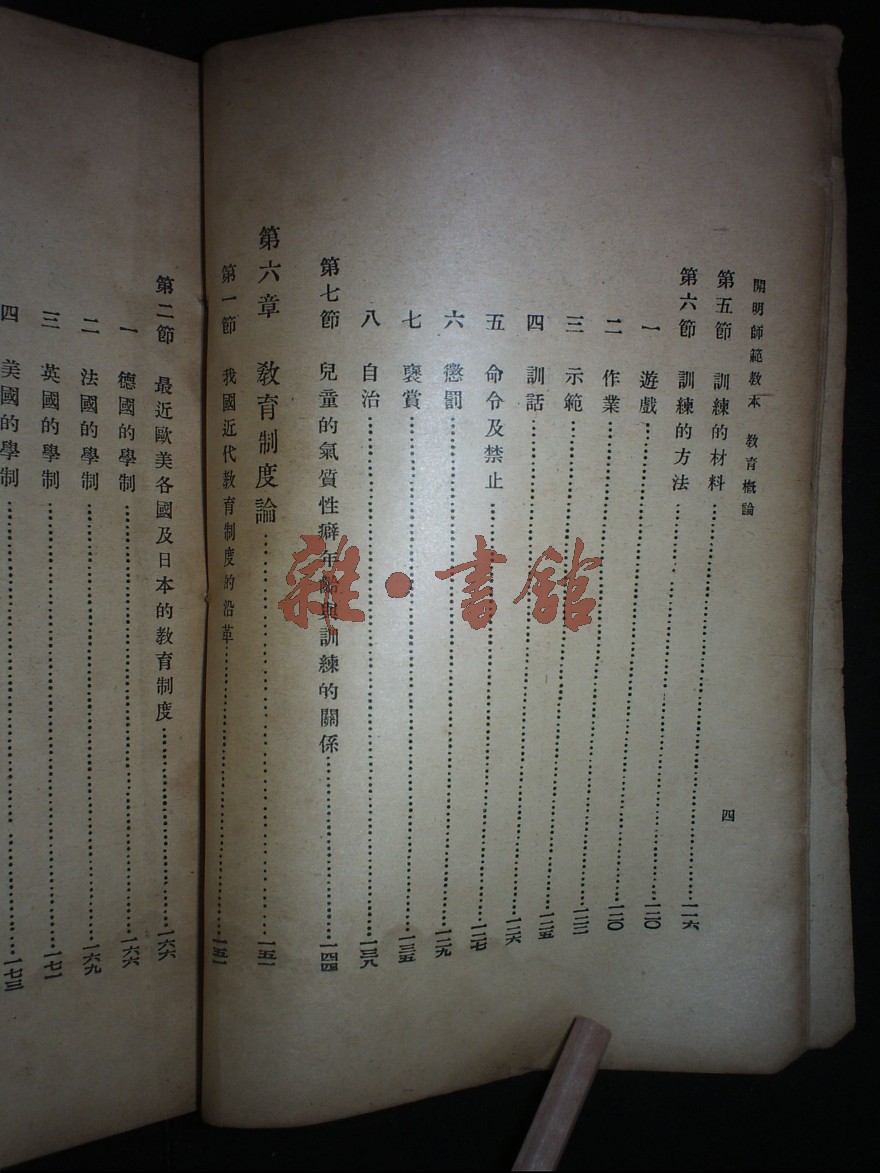 開明師範教本 教育概論
四
第五節 訓練的材料……一一六
第六節 訓練的方法……一二〇
一 遊戲……一二〇
二 作業……一二三
三 示範……一二五
四 訓話……一二六
五 命令及禁止……一二七
六 懲罰……一二九
七 褒賞……一三五
八 自治……一三八
第七節 兒童的氣質性癖年齡與訓練的關係……一四四
第六章 教育制度論……一五一
第一節 我國近代教育制度的沿革……一五一
第二節 最近歐美各國及日本的教育制度……一六六
一 德國的學制……一六六
二 法國的學制……一六九
三 英國的學制……一七一
四 美國的學制……一七三
雜·書館